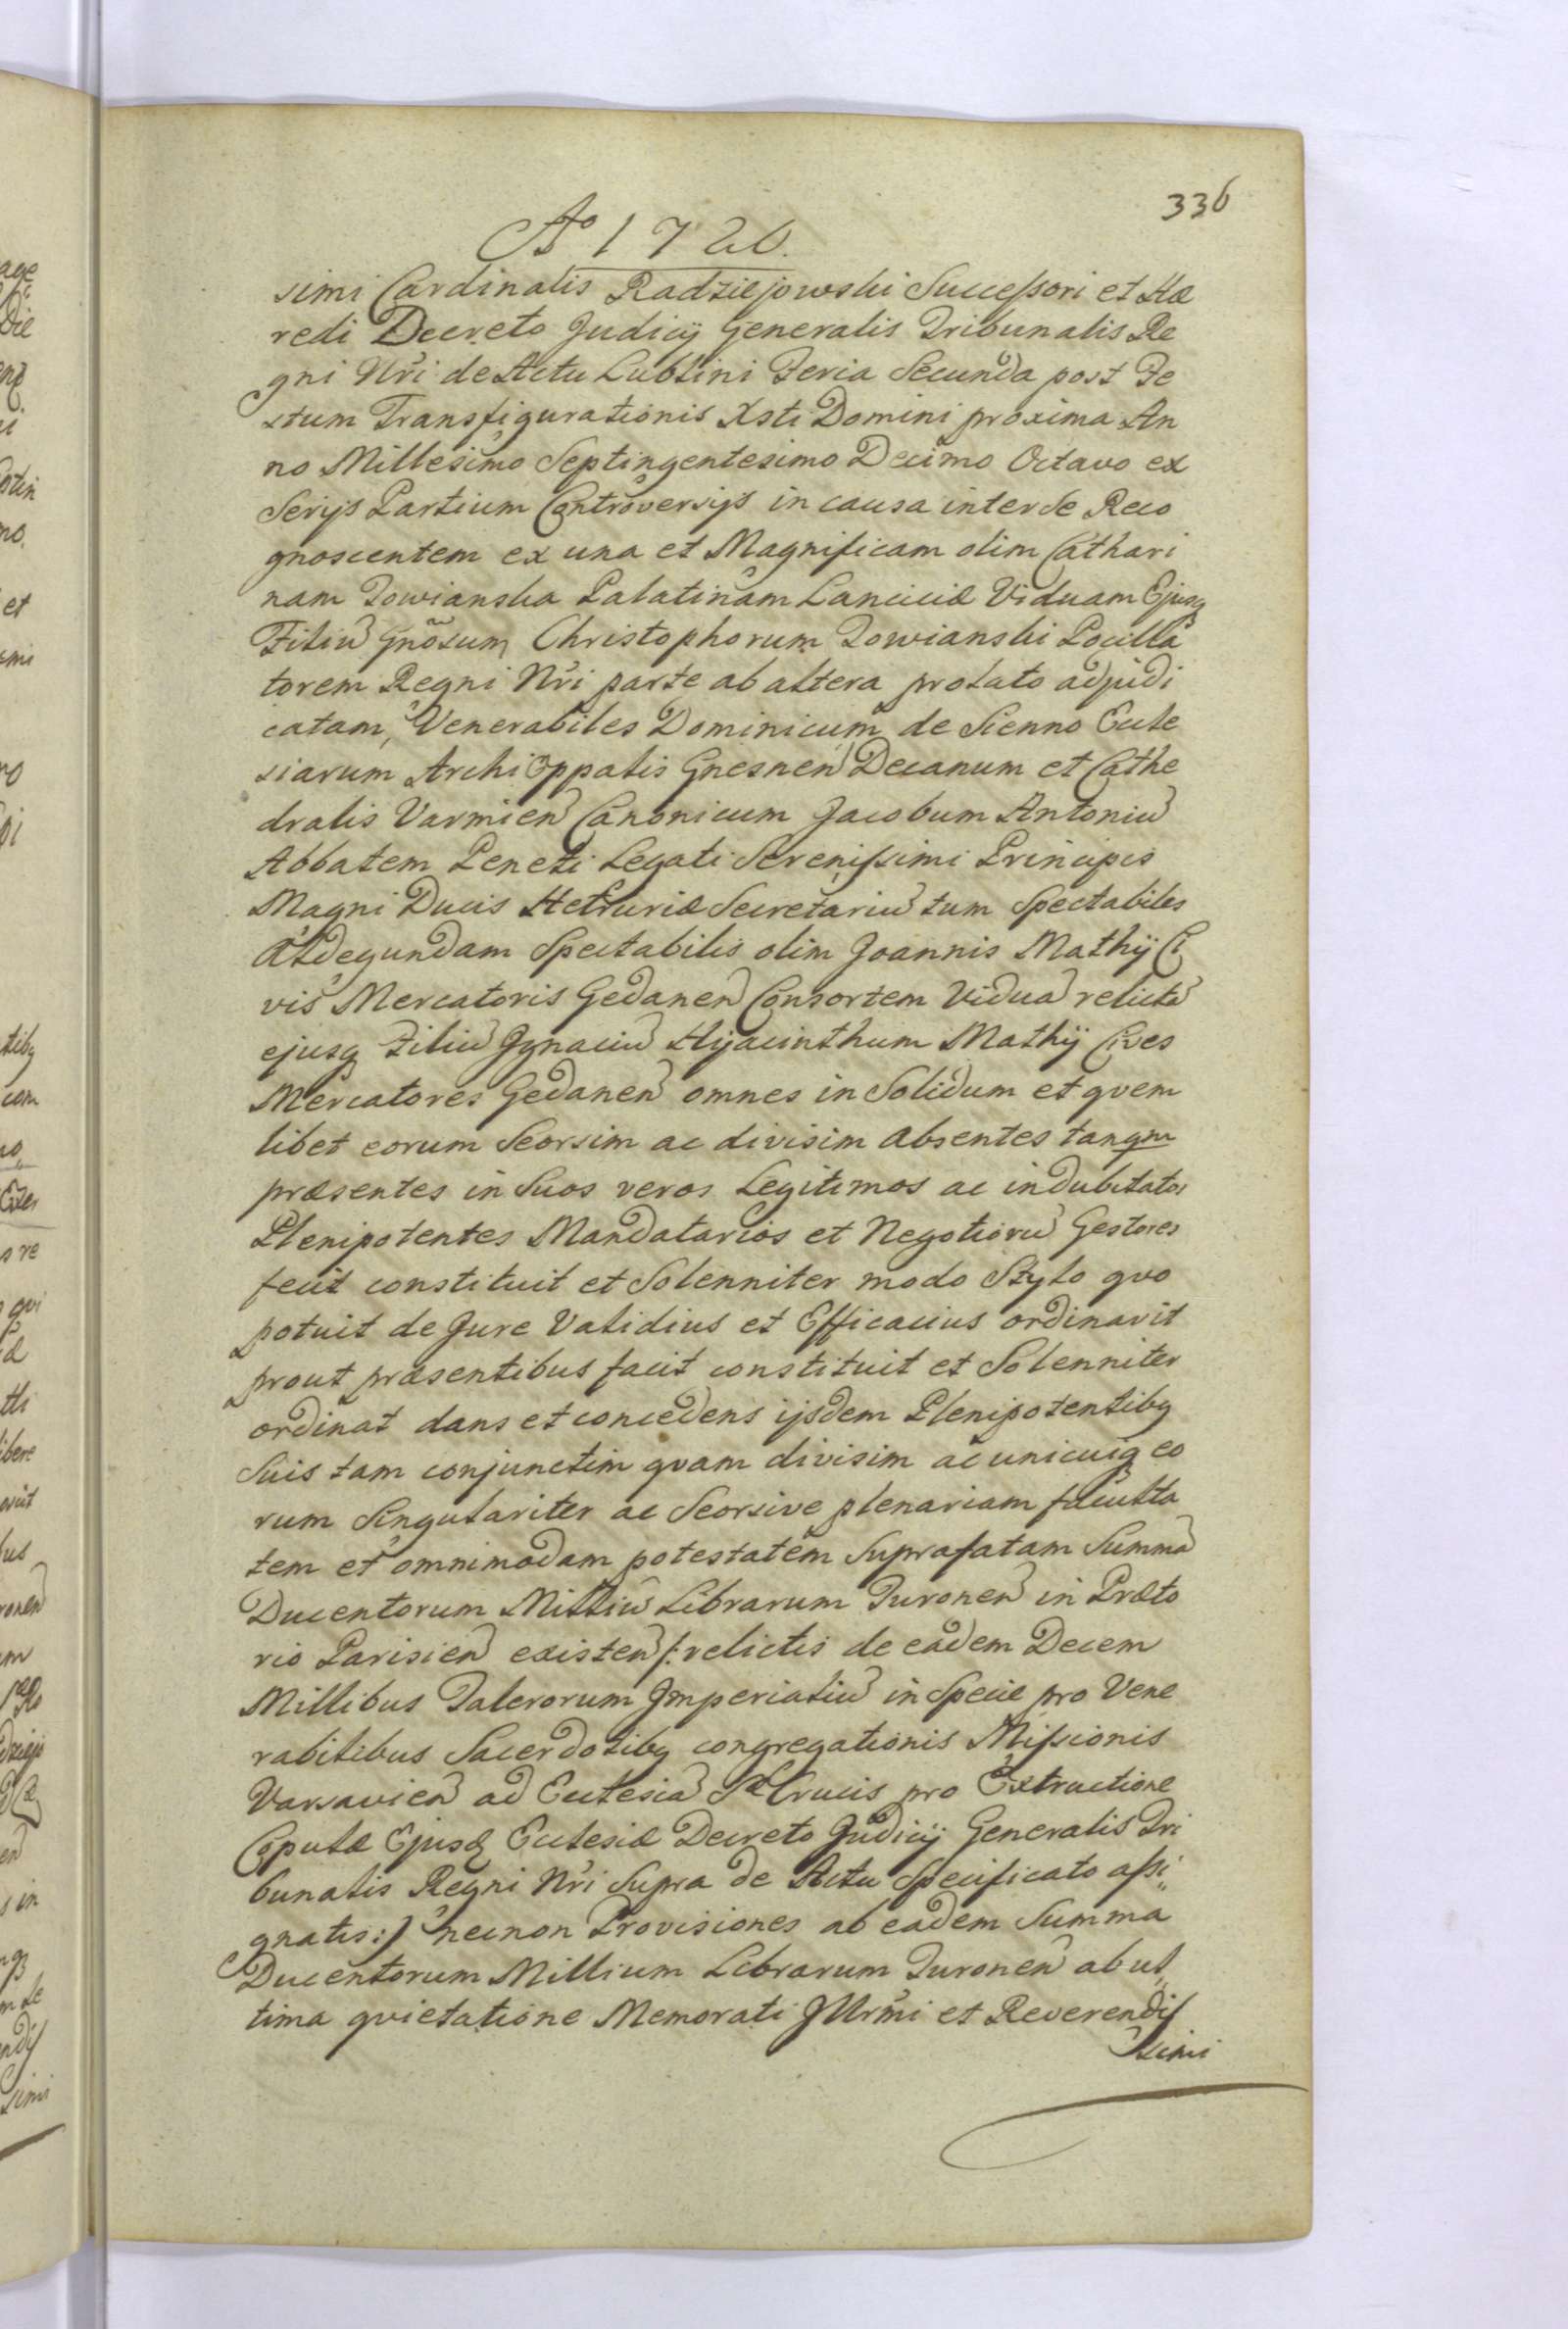 336
Ao 1726.
simi Cardinalis Radziejowski Successori et Hæ
redi Decreto Judicij Generalis Tribunalis Re
gni Nri de Actu Lublini Feria Secunda post Fe
stum Transfigurationis Xsti Domini proxima An
no Millesimo Septingentesimo Decimo Octavo ex
Serijs Partium Controversijs in causa inter se Reco
gnoscentem ex una et Magnificam olim Cathari
nam Towianska Palatinam Lanciciæ Viduam Ejusq
Filiũ Gnõsum Christophorum Towianski Pocilla
torem Regni Nri parte ab altera prolato adjudi
catam, Venerabiles Dominicum de Sienno Eccle
siarum Archi Eppalis Gnesnen Decanum et Cathe
dralis Varmien Canonicum Jacobum Antoniũ
Abbatem Peneti Legati Serenissimi Principis
Magni Ducis Hetruriæ Secretariũ tum Spectabiles
Aldegundam Spectabilis olim Joannis Mathij Ci
vis Mercatoris Gedanen Consortem Viduã relictã
ejusq Filiũ Ignaciũ Hyacinthum Mathij Cives
Mercatores Gedanen omnes in Solidum et qvem
libet eorum Seorsim ac divisim absentes tanqm
præsentes in Suos veros Legitimos ac indubitatos
Plenipotentes Mandatarios et Negotiorũ Gestores
fecit constituit et Solenniter modo Stylo qvo
potuit de Jure Validius et Efficacius ordinavit
prout præsentibus facit constituit et Solenniter
ordinat dans et concedens ijsdem Plenipotentibq
Suis tam conjunctim qvam divisim ac unicuiq eo
rum Singulariter ac Seorsive plenariam faculta
tem et omnimodam potestatem Suprafatam Summã
Ducentorum Milliũ Librarum Turonen in Præto
rio Parisien existen /: relictis de eadem Decem
Millibus Talerorum Imperialiũ in Specie pro Vene
rabilibus Sacerdotibq congregationis Missionis
Varsavien ad Ecclesiã Sæ Crucis pro Extructione
Copulæ Ejusq Ecclesiæ Decreto Judicij Generalis Tri
bunalis Regni Nri Supra de Actu Specificato assi„
gnatis :/ necnon Provisiones ab eadem Summa
Ducentorum Millium Librarum Turonen ab ul„
tima qvietatione Memorati Illrmi et Reverendis
simi